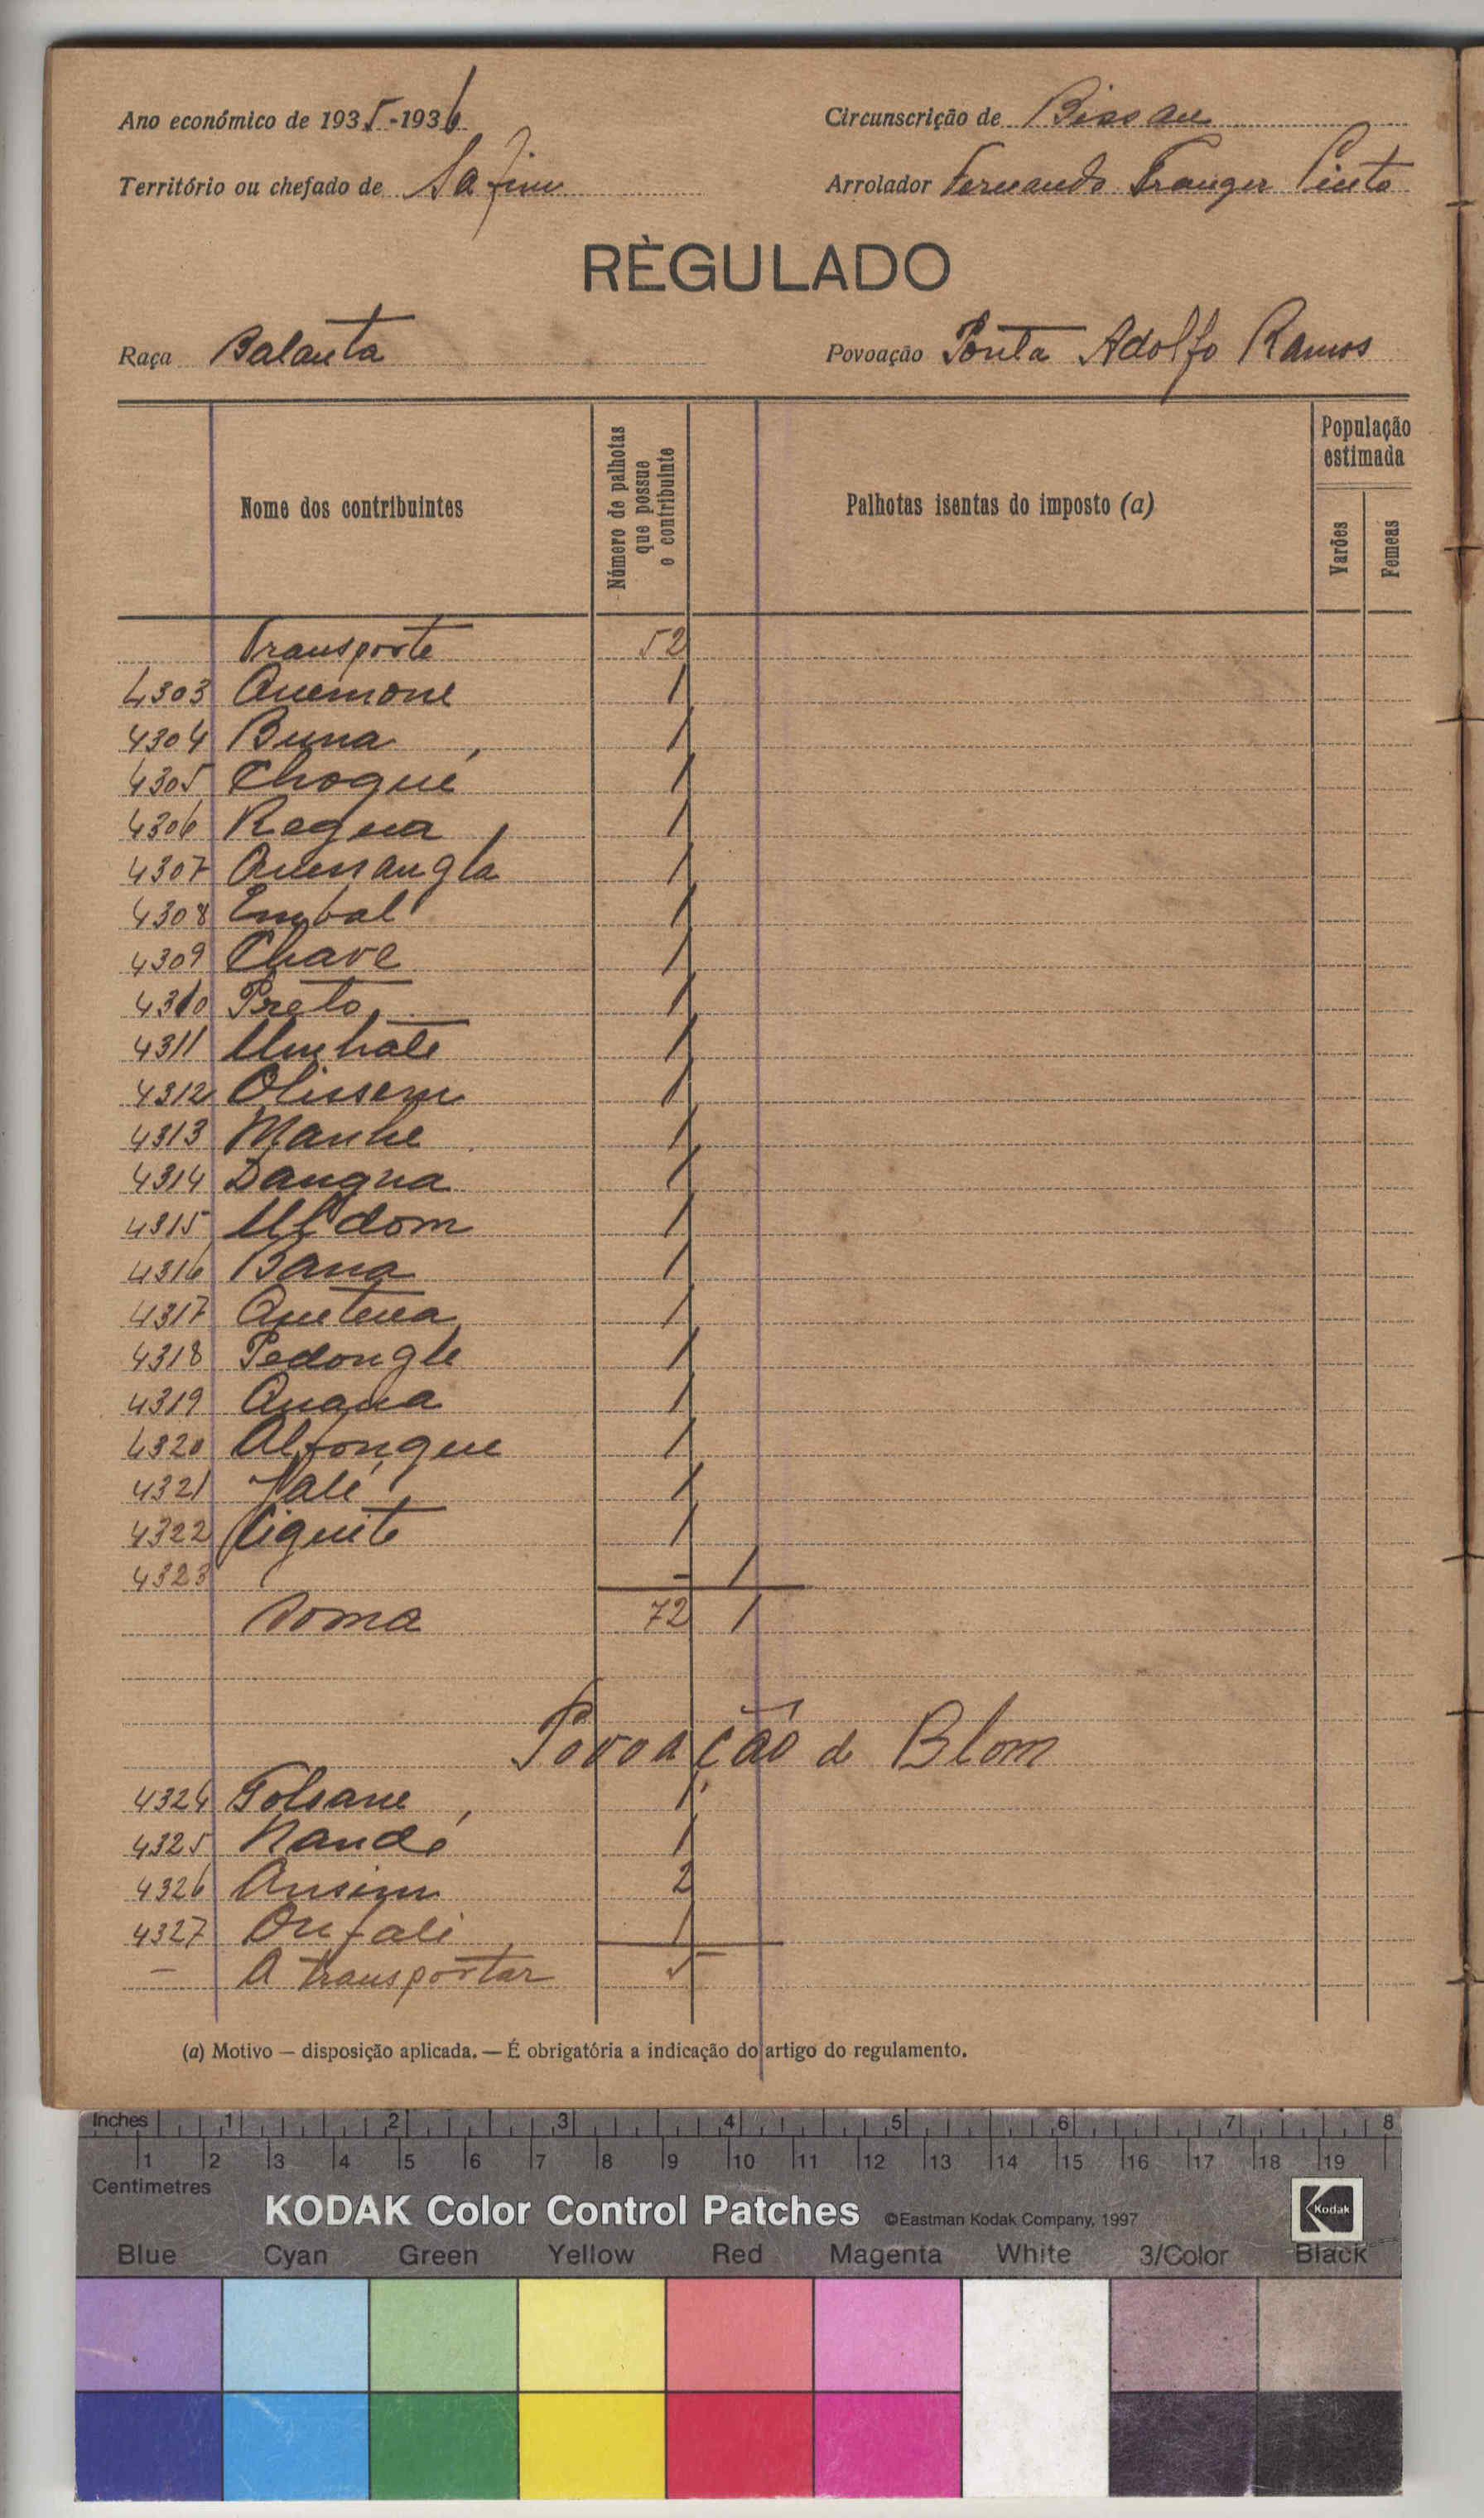 Ano económico de 1935-1936 Circunscrição de Bissau
Território ou chefado de Safim Arrolador Fernando Pinto
RÈGULADO
Raça Balanta Povoação Ponta Adolfo Ramos
Nome dos contribuintes
Número de palhotas que possue o contribuinte
Palhotas isentas do imposto (a)
População estimada
Varões
Femeas
Transporte 52
4303 Quemone 1
4304 Buna 1
4305 Choqué 1
4306 Regua 1
4307 1
4308 Embal 1
4309 Chave 1
4310 Preto 1
4311 Umhate 1
4312 Olissem 1
4313 Manhe 1
4314 Dangna 1
4315 1
4316 Bana 1
4317 1
4318 Pedongle 1
4319 1
4320 Alfongue 1
4321 Jalé 1
4322 Ciguite 1
4323 - 1
Soma 72 1
Povoação de Blom
4324 Folsane 1
4325 Nandé 1
4326 Ansim 2
4327 1
- A transportar 5
(a) Motivo — disposição aplicada. — É obrigatória a indicação do artigo do regulamento.
Inches 1 2 3 4 5 6 7 8
1 2 3 4 5 6 7 8 9 10 11 12 13 14 15 16 17 18 19
Centimetres
KODAK Color Control Patches ©Eastman Kodak Company, 1997 Kodak
Blue Cyan Green Yellow Red Magenta White 3/Color Black